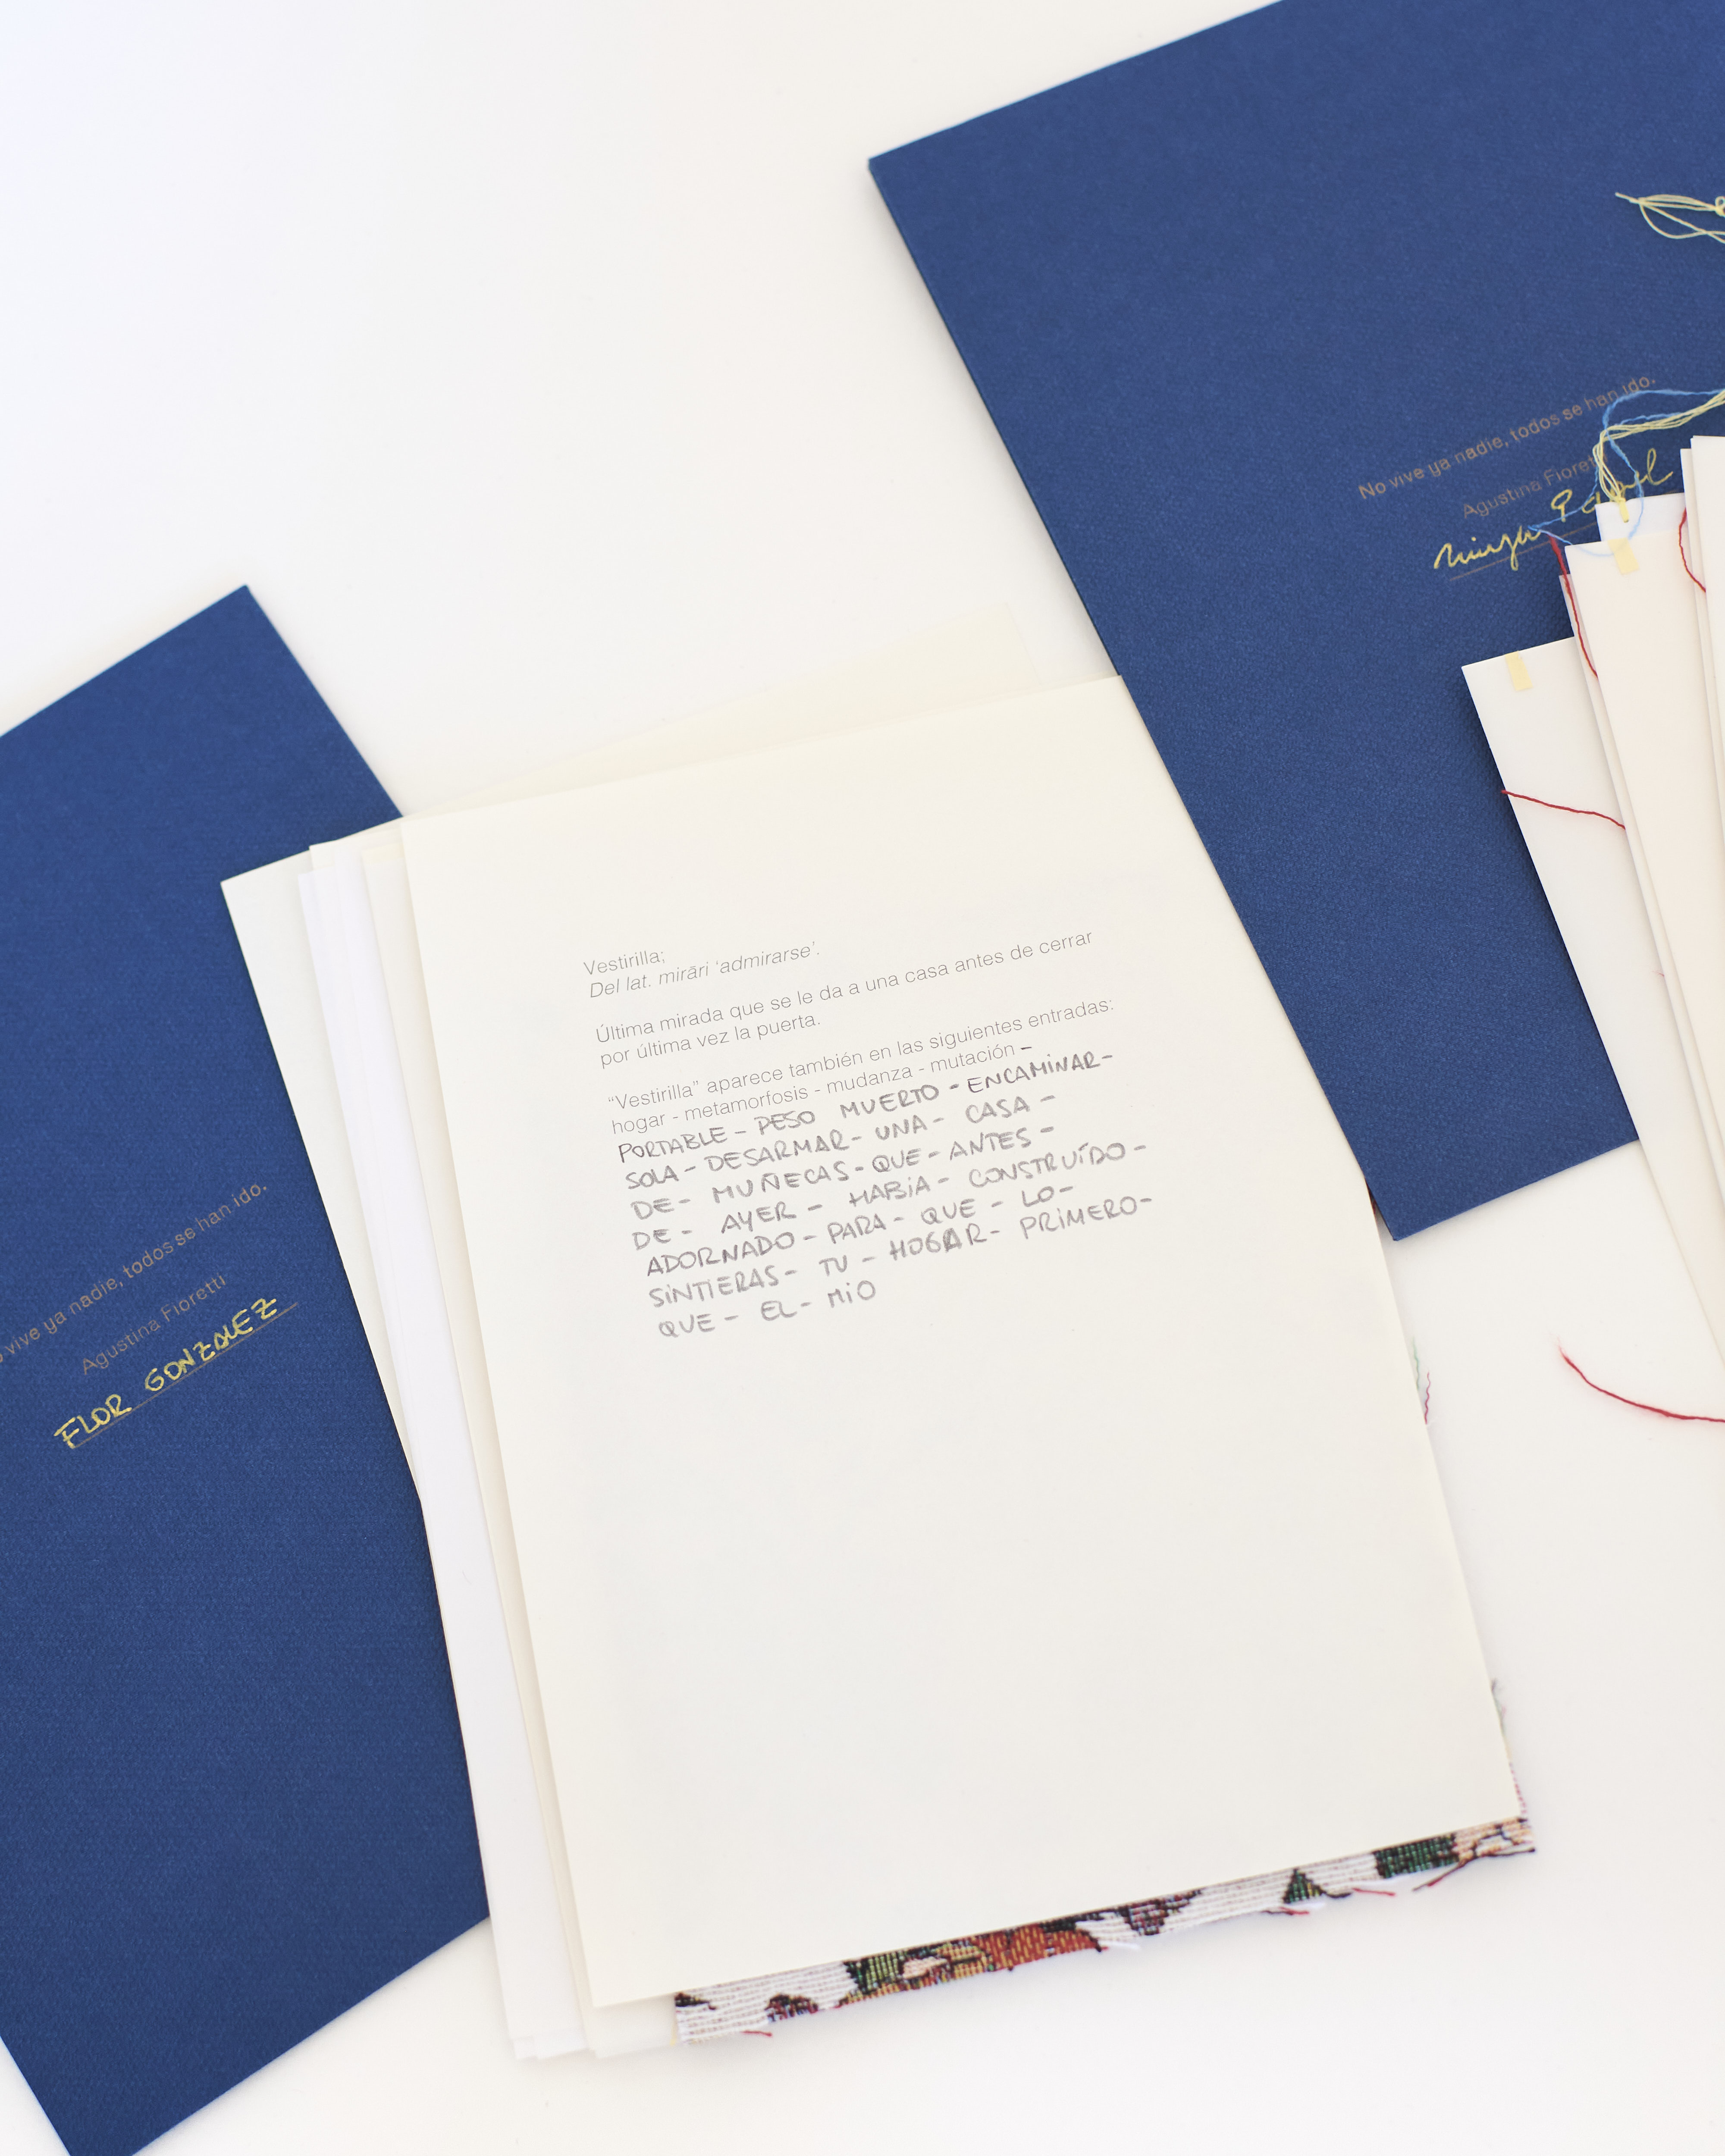 No vive ya nadie, todos se han ido.
Agustina Fioretti
Vestirilla;
Del lat. mirāri ‘admirarse’.
Última mirada que se le da a una casa antes de cerrar
por última vez la puerta.
“Vestirilla” aparece también en las siguientes entradas:
hogar - metamorfosis - mudanza - mutación –
PORTABLE - PESO MUERTO - ENCAMINAR-
SOLA - DESARMAR - UNA - CASA -
DE - MUÑECAS - QUE - ANTES -
DE - AYER - HABÍA - CONSTRUÍDO -
ADORNADO - PARA - QUE - LO-
SINTIERAS - TU - HOGAR - PRIMERO-
QUE - EL - MIO
vive ya nadie, todos se han ido.
Agustina Fioretti
FLOR GONZALEZ